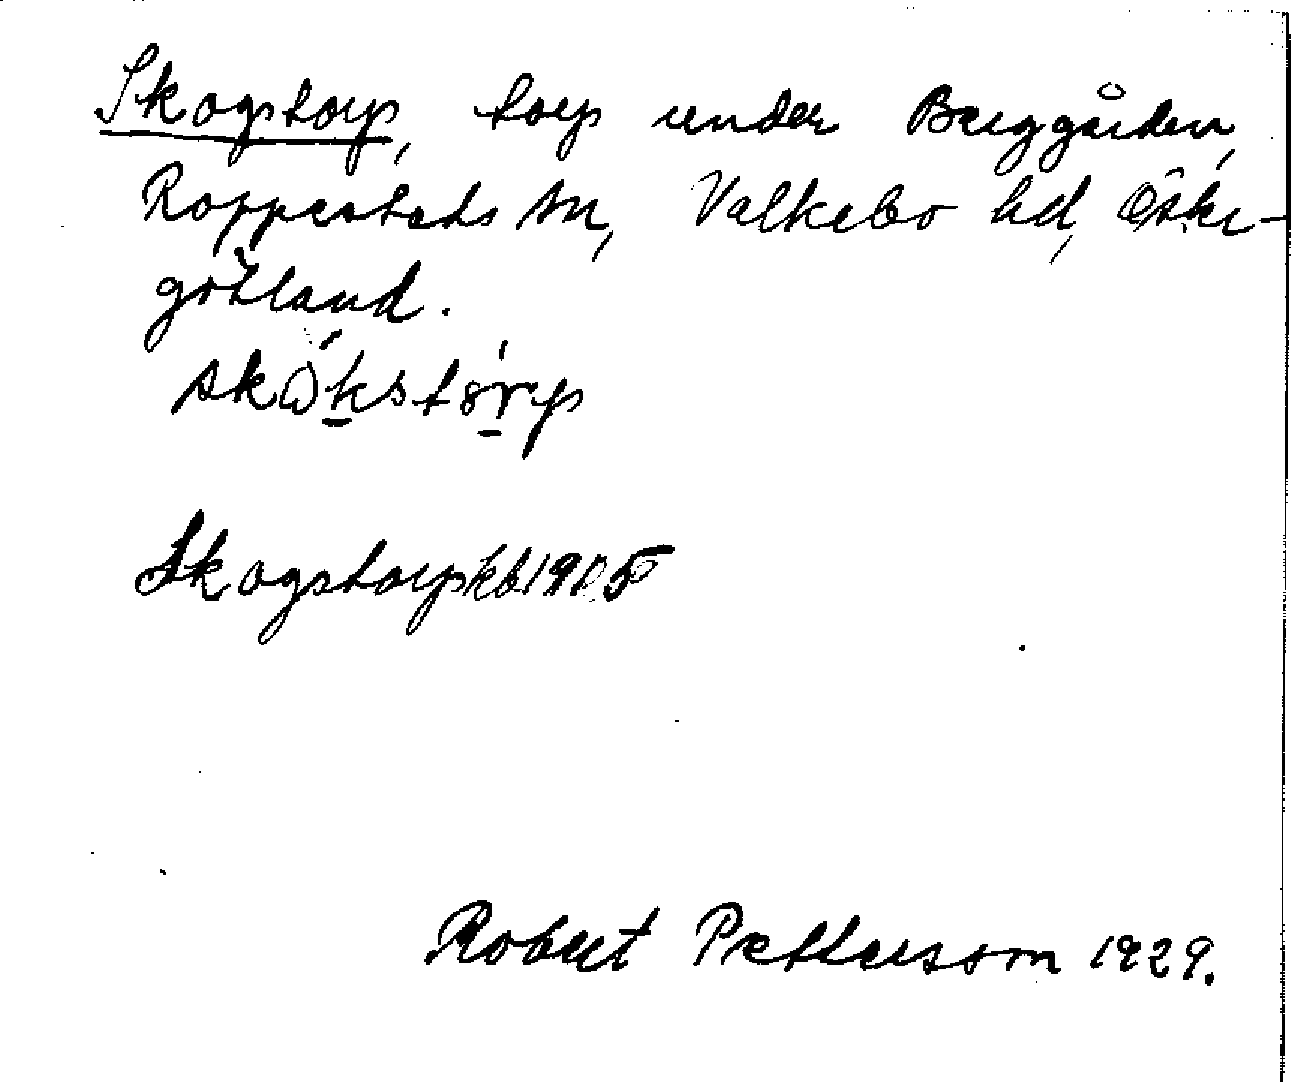 Skogstorp, torp under Berggården,
Rappestads sn, Valkebo hd, Öster-
götland.
skώkstɵrp
Skogstorp kb 1905
Robert Pettersson 1929.